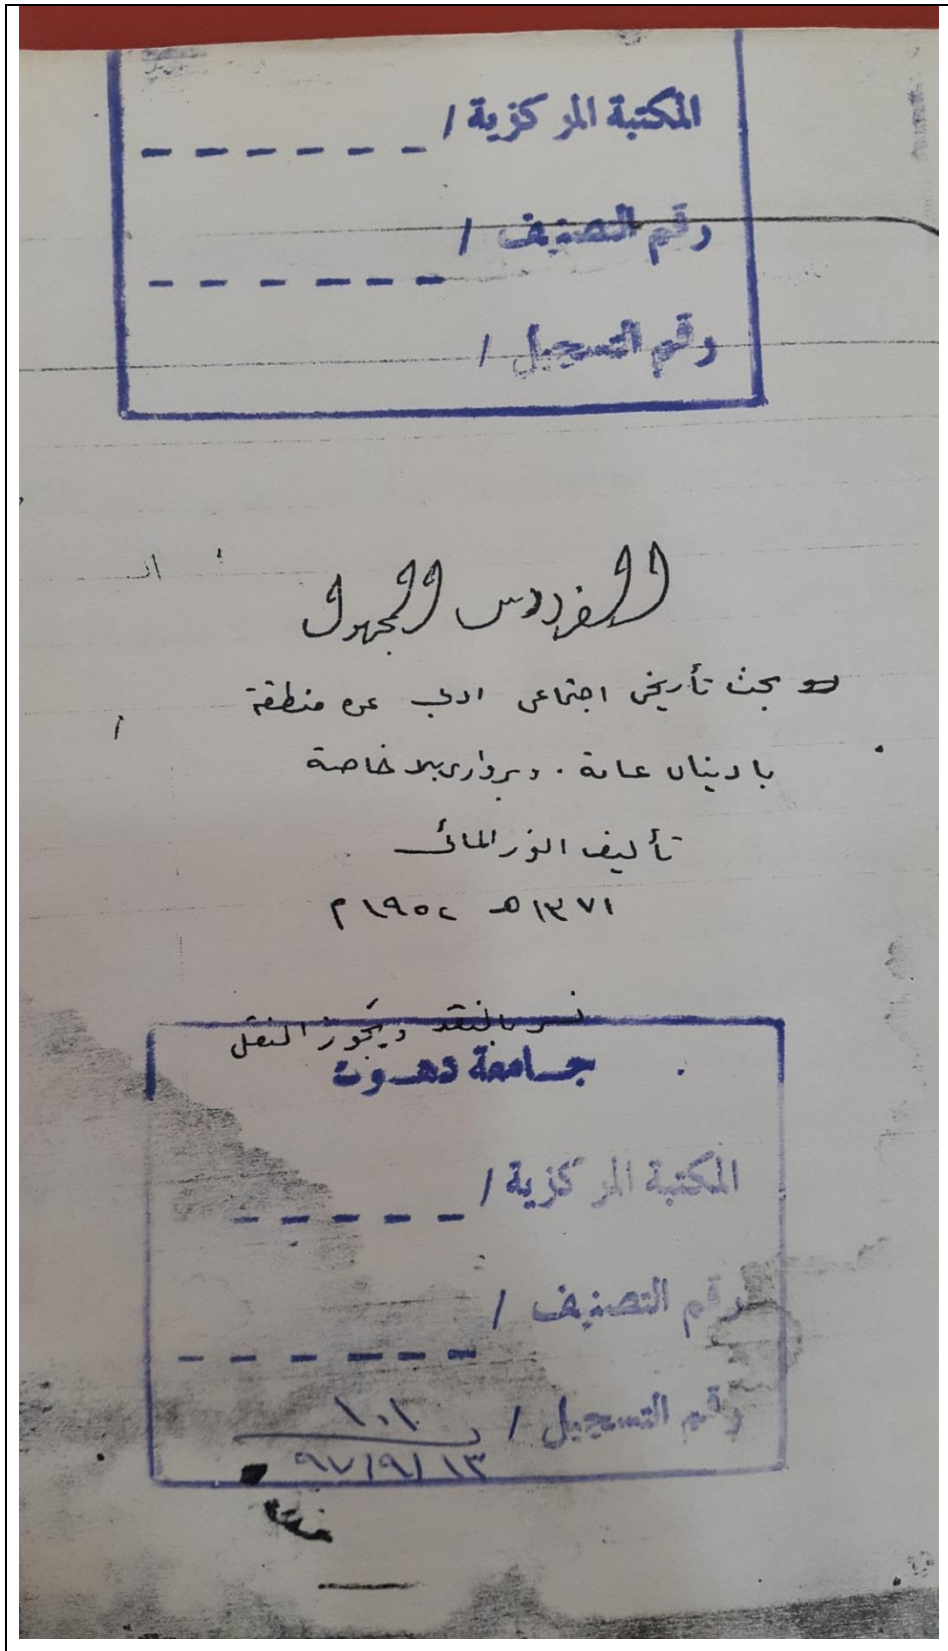 المكتبة المركزية /
رقم التصنيف /
رقم التسجيل /
الفردوس المجهول
بحث تأريخي اجتماعي ادبي عن منطقة
بادينان عامة . وبرواري بالا خاصة
تأليف انور المائي
١٣٧١ هـ ١٩٥٢ م
نسر بالنقد ويجوز النقل
جامعة دهوك
المكتبة المركزية /
رقم التصنيف /
رقم التسجيل / ١٠١
٩٧/٩/١٣